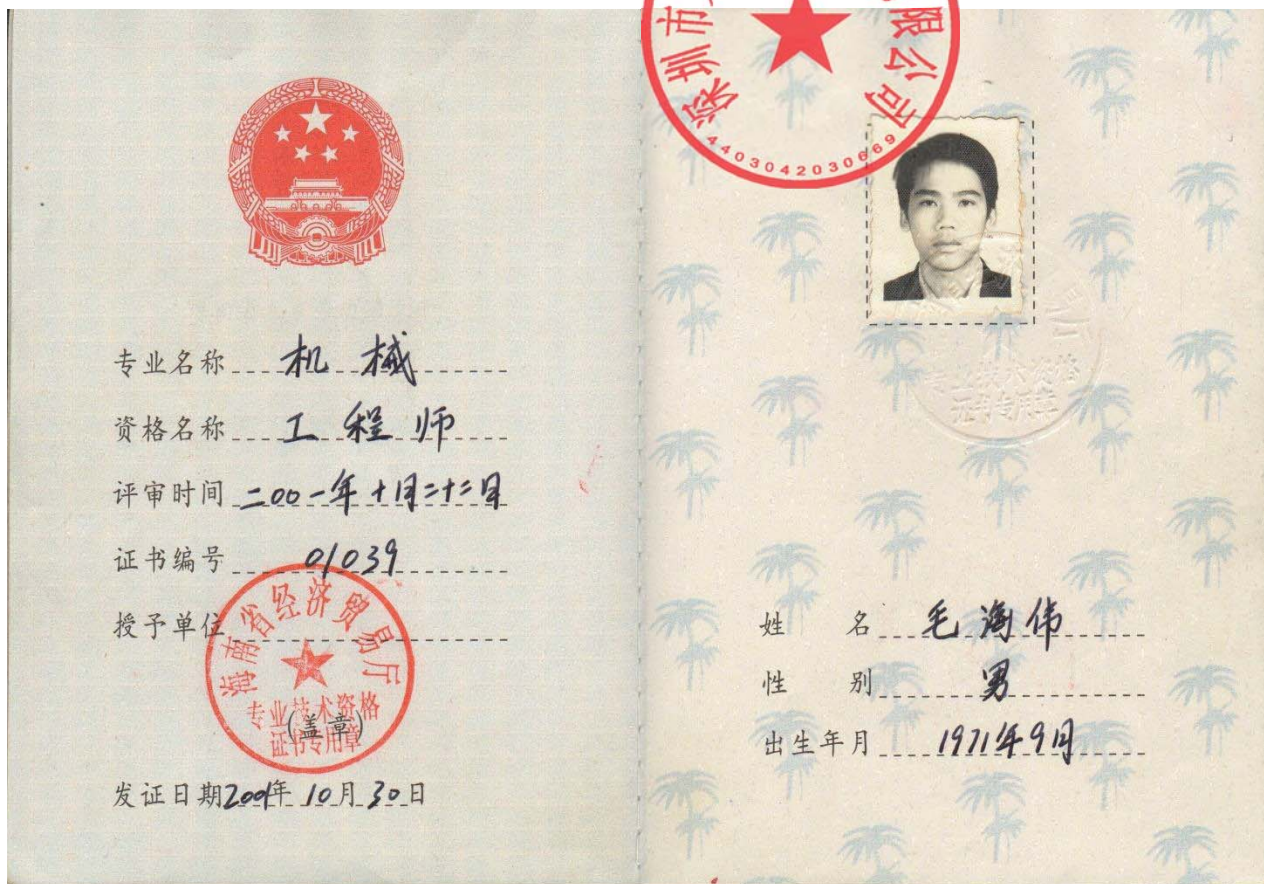 专业名称 机械
资格名称 工程师
评审时间 二00一年十月二十二日
证书编号 01039
授予单位
海南省经济贸易厅
专业技术资格
证书专用章
(盖章)
发证日期2001年10月30日
深圳市
限公司
4403042030669
专业技术资格
证书专用章
姓 名 毛海伟
性 别 男
出生年月 1971年9月